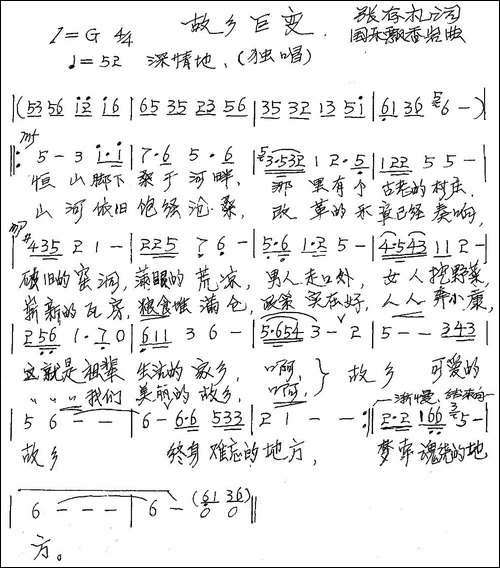 故乡巨变
1=G 4/4 张存礼词
♩=52 深情地、(独唱) 国乐飘香岩曲
|(53 56 i2 i6 | 65 35 23 56 | 35 32 13 5i | 61 36 5 6 -)|
mf
‖: 5 - 3 i·i | 7·6 5·6 | 5 3·532 1 2·5 | 122 5 5 - |
恒 山脚下 桑干河畔, 那 里有个 古老的村庄.
山 河依旧 饱经沧桑, 改 革的乐章已经奏响,
mp
#435 2 1 - | 225 7 6 - | 5·6 1·2 5 - | 4·543 1 1 2 - |
破旧的窑洞, 满眼的荒凉, 男人走口外, 女人挖野菜,
崭新的瓦房, 粮食堆满仓, 政策实在好, 人人奔小康,
256 1·7 0 | 611 3 6 - | 5·654 3 - 2 | 5 - - 343 |
这就是祖辈 生活的家乡, 啊, 故乡 可爱的
" " " 我们 美丽的故乡, 啊,
渐慢 结束句
| 5 6 - - | 6 - 6·6 533 | 2 1 - - :‖ 2·2 166 3 5 - |
故乡 终身难忘的地方, 梦牵魂绕的地
| 6 - - - | 6 - (61 36) 0 0 ‖
方。